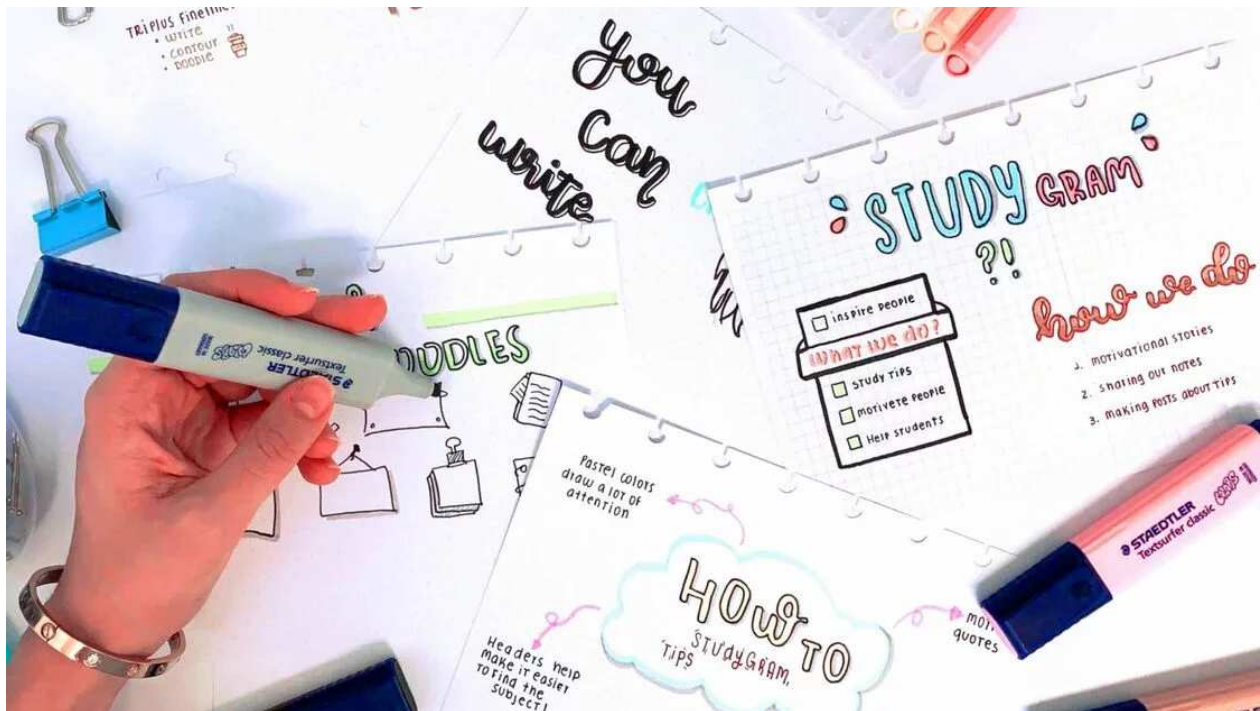 TRIPLUS
• WRITE
• CONTOUR
• DOODLE
you
can
write
STUDY GRAM
?!
inspire people
WHAT WE DO?
STUDY TIPS
MOTIVETE PEOPLE
Help Students
how we do
1. motivational stories
2. sharing our notes
3. making posts about tips
STAEDTLER
Textsurfer classic
Pastel colors
draw a lot of
attention
HOW TO
STUDYGRAM
TIPS
quotes
Headers help
make it easier
to find the
subject!
STAEDTLER
Textsurfer classic